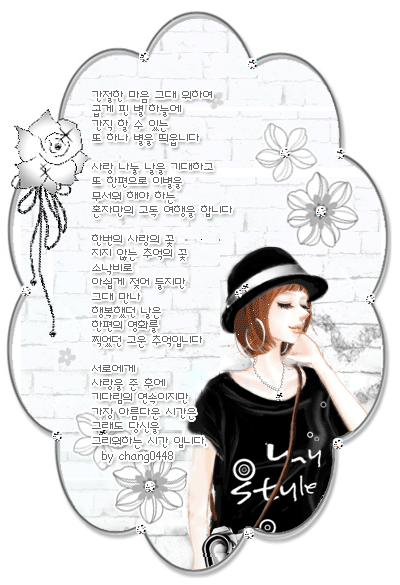 간절한 마음 그대 위하여
곱게 핀 별 하늘에
간직 할 수 있는
또 하나 별을 띄웁니다
사랑 나눌 날을 기대하고
또 한편으로 이별을
무서워 해야 하는
혼자만의 고독 여행을 합니다
한번의 사랑의 꽃 . . . .
지지 않는 추억의 꽃
소낙비로
아쉽게 젖어 들지만
그대 만나
행복했던 날은
한편의 영화를
찍었던 고운 추억입니다
서로에게
사랑을 준 후에
기다림의 연속이지만
가장 아름다운 시간은
그래도 당신을
그리워하는 시간 입니다
by chang0448
my
style